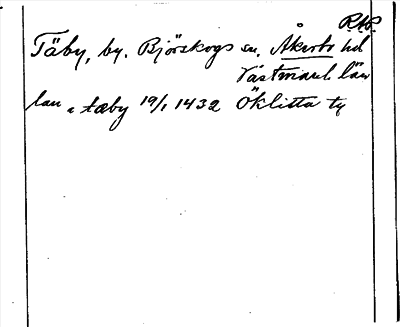 R.A.P.
Täby, by. Björskogs sn. Åkerbo hd
Västmanl. län
lau a tæby 19/1 1432 Öklista ty